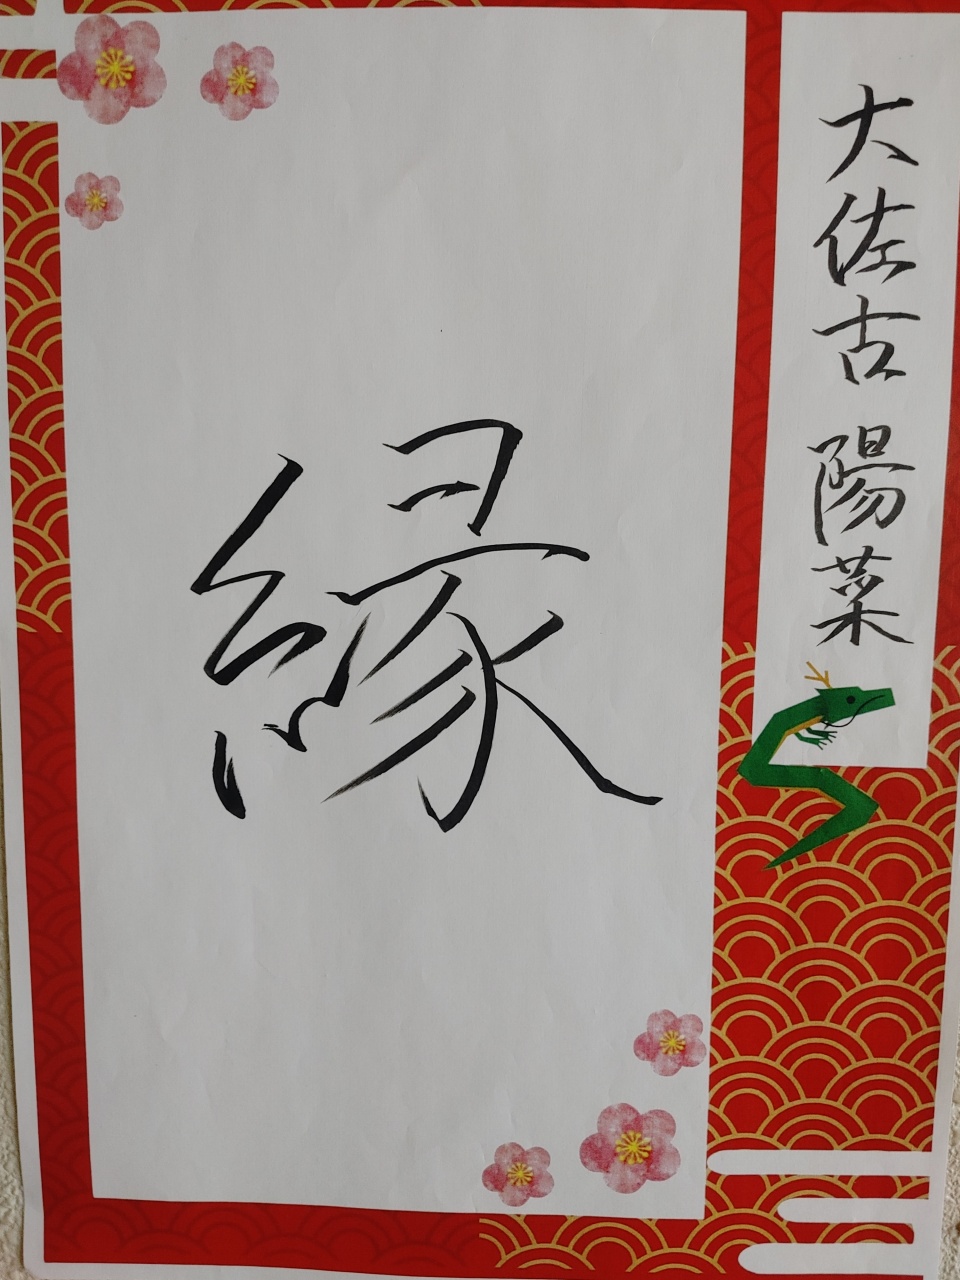 大佐古 陽菜
縁